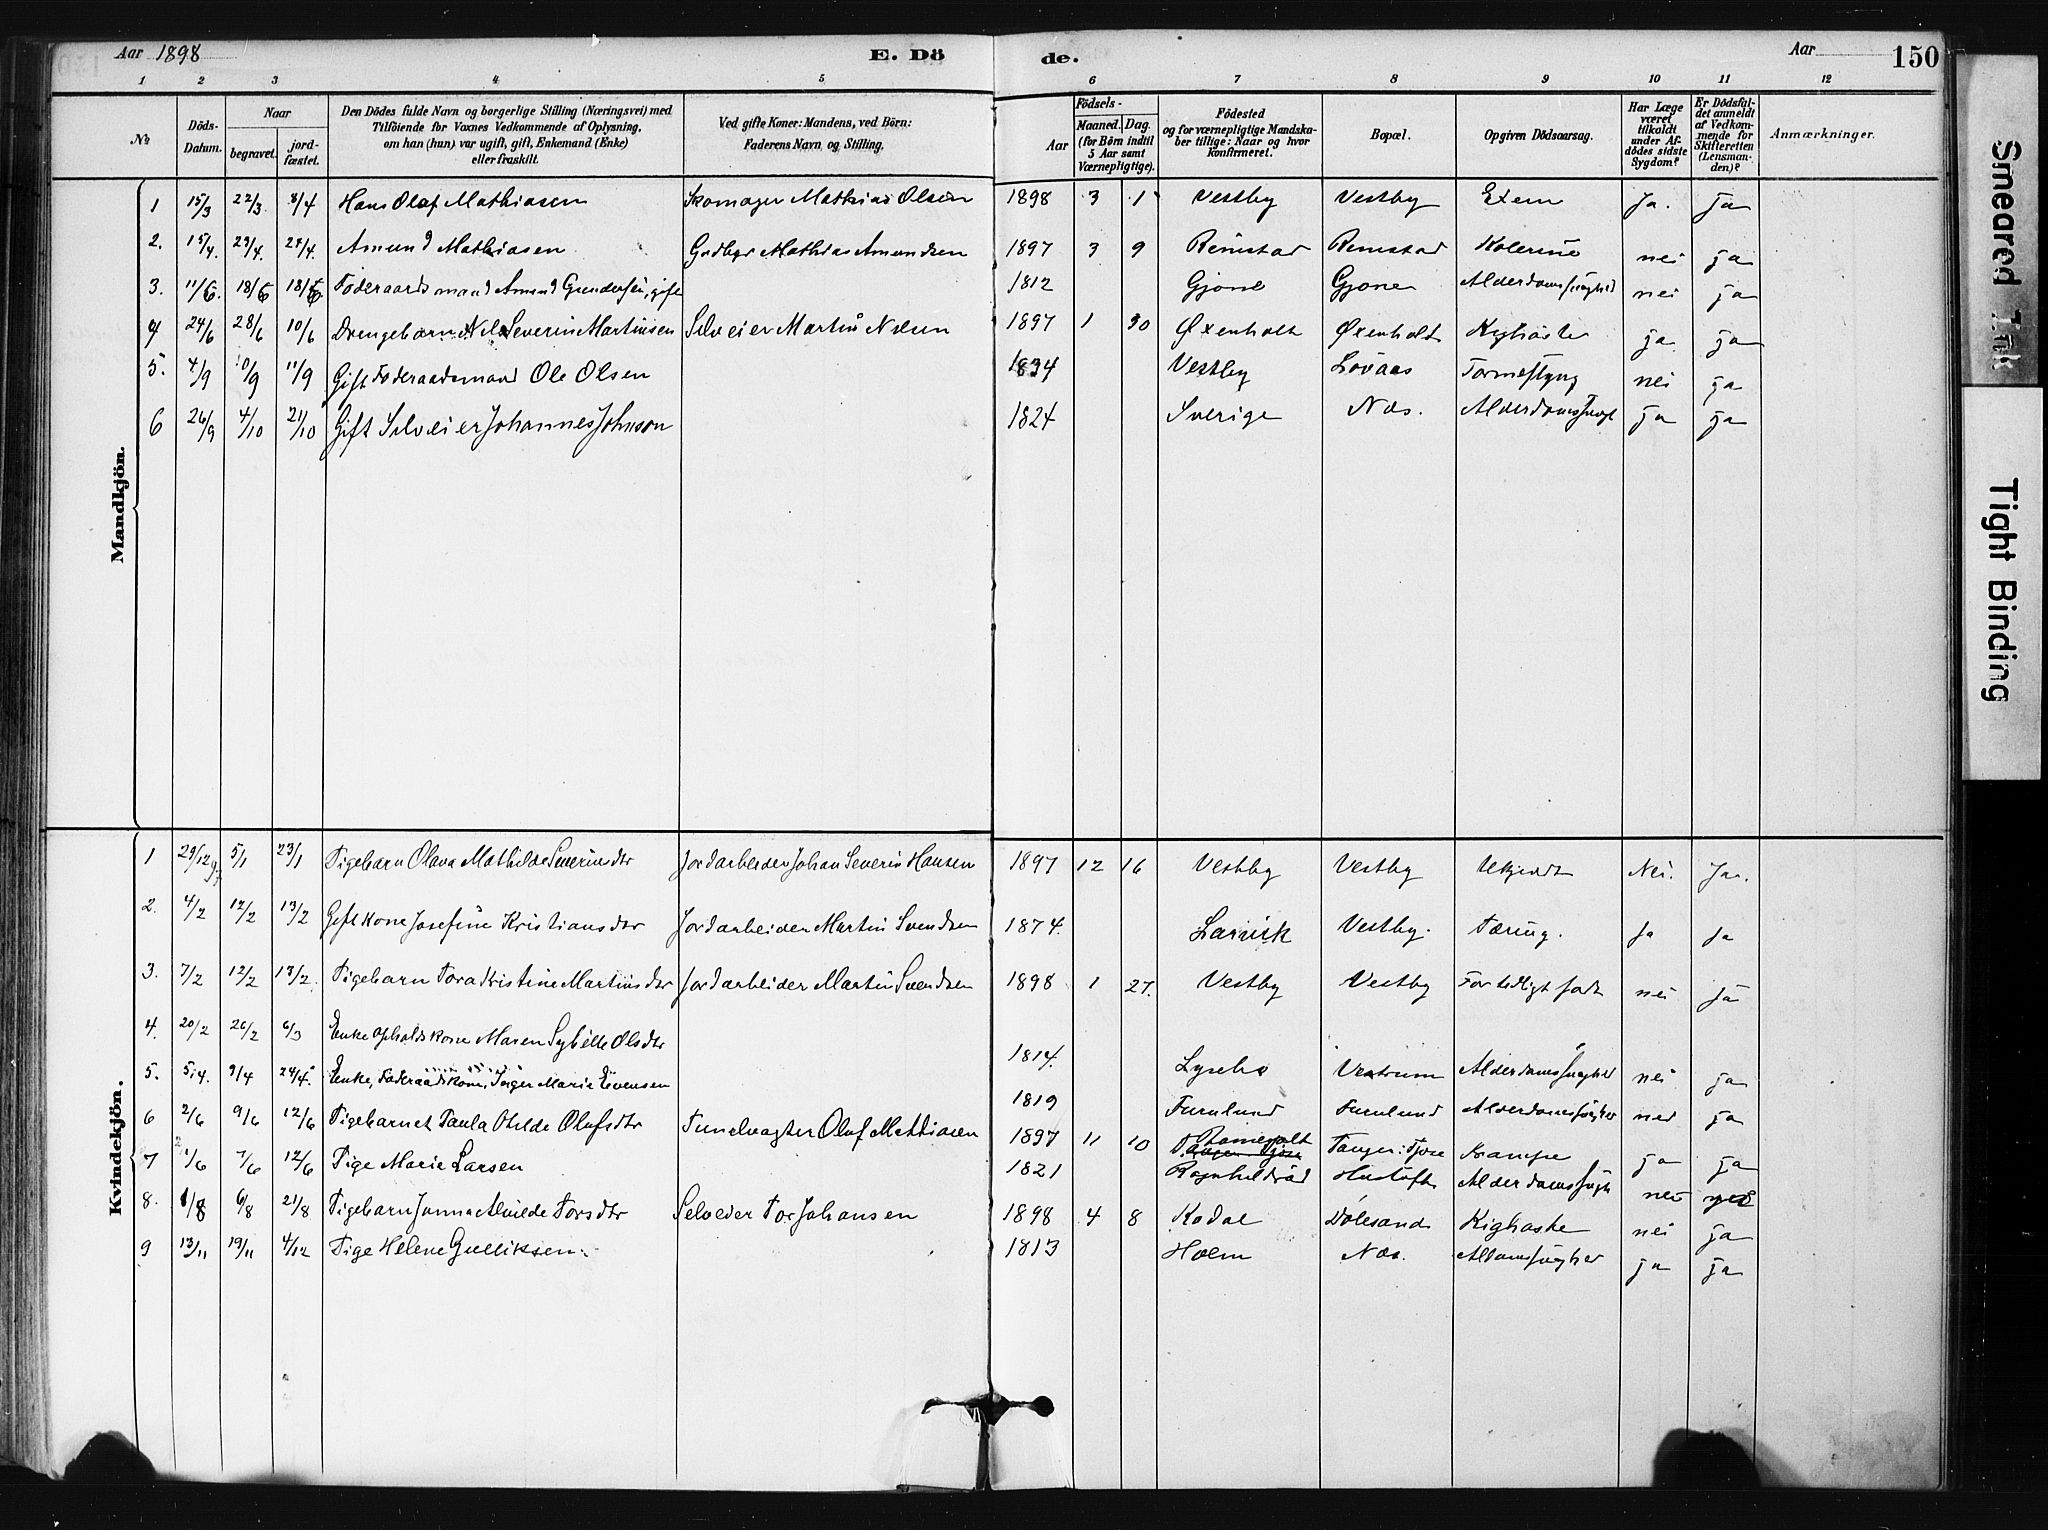 Aar 1898 E. Döde. Aar 150
1 2 3 4 5 6 7 8 9 10 11 12
№ Döds-Datum. Naar begravet. jord-fæstet. Den Dödes fulde Navn og borgerlige Stilling (Næringsvei) med Tilföiende for Voxnes Vedkommende af Oplysning, om han (hun) var ugift, gift, Enkemand (Enke) eller fraskilt. Ved gifte Koner: Mandens, ved Börn: Faderens Navn og Stilling. Födsels- Aar Maaned. Dag. (for Børn indtil 5 Aar samt Værnepligtige). Födested og for værnepligtige Mandskaber tillige: Naar og hvor Konfirmeret. Bopæl. Opgiven Dödsaarsag. Har Læge været tilkaldt under Afdödes sidste Sygdom? Er Dödsfaldet anmeldt af Vedkommende for Skifteretten (Lensmanden)? Anmærkninger.
Mandkjön.
1 15/3 22/3 8/4 Hans Olaf Mathiasen Skomager Mathias Olsen 1898 3 1 Vestby Vestby Exem Ja. Ja
2. 15/4. 23/4. 24/4. Amund Mathiasen Gaardbgr Mathias Amundsen 1897 3 9 Rimstad Rimstad Kolerine nei ja
3. 11/6. 18/6 18/6 Föderaadsmand Amund Gundersen, gift 1812 Gjone Gjone Alderdomssvaghed nei ja
4 24/6 28/6 10/6 Drengebarn Nils Severin Martinsen Selveier Martin Nilsen 1897 1 30 Øxenholt Øxenholt Kighoste ja ja
5. 4/9 10/9 11/9 Gift Föderaadsmand Ole Olsen 1834 Vestby Lovaas Tarmeslyng nei ja
6 26/9 4/10 21/10 Gift Selveier Johannes Johnson 1824 Sverige Næs. Alderdomssvagh ja ja
Kvindekjön.
1 29/12 97 5/1 23/1 Pigebarn Olava Mathilde Severinsdtr Jordarbeider Johan Severin Hansen 1897 12 16 Vestby Vestby Ukjendt Nei. Ja.
2. 4/2 12/2 13/2 Gift kone Josefine Kristiansdtr Jordarbeider Martin Svendsen 1874. Larvik Vestby. Tæring. Ja Ja
3. 7/2 12/2 13/2. Pigebarn Tora Kristine Martinsdtr Jordarbeider Martin Svendsen 1898 1 27. Vestby Vestby For tidligt født nei Ja
4. 20/2 26/2 6/3 Enke Opholdskone Maren Sybille Olsdtr 1814. Lysebo Vestrum Alderdomssvaghed nei ja
5. 5/4. 9/4 24/4. Enke, Föderaadskone, Inger Marie Evensen 1819 Furulund Furulund Alderdomssvaghed nei ja
6 2/6 9/6 12/6 Pigebarnet Paula Otilde Olufsdtr Tunelvagter Oluf Mathiasen 1897 11 10 Tangen Tjose Krampe ja ja
7 1/6 7/6 12/6 Pige Marie Larsen 1821 Ragnhildröd Alderdomssvagh nei
8. 1/8 6/8 21/8 Pigebarn Janna Alvilde Torsdtr Selveier Tor Johansen 1898 4 8 Kodal Dolesand Kighoste nei ja
9 13/11 19/11 4/12 Pige Helene Gulliksen. 1813 Holm Næs. Aldomssvaghed ja ja
Smeared Ink
Tight Binding